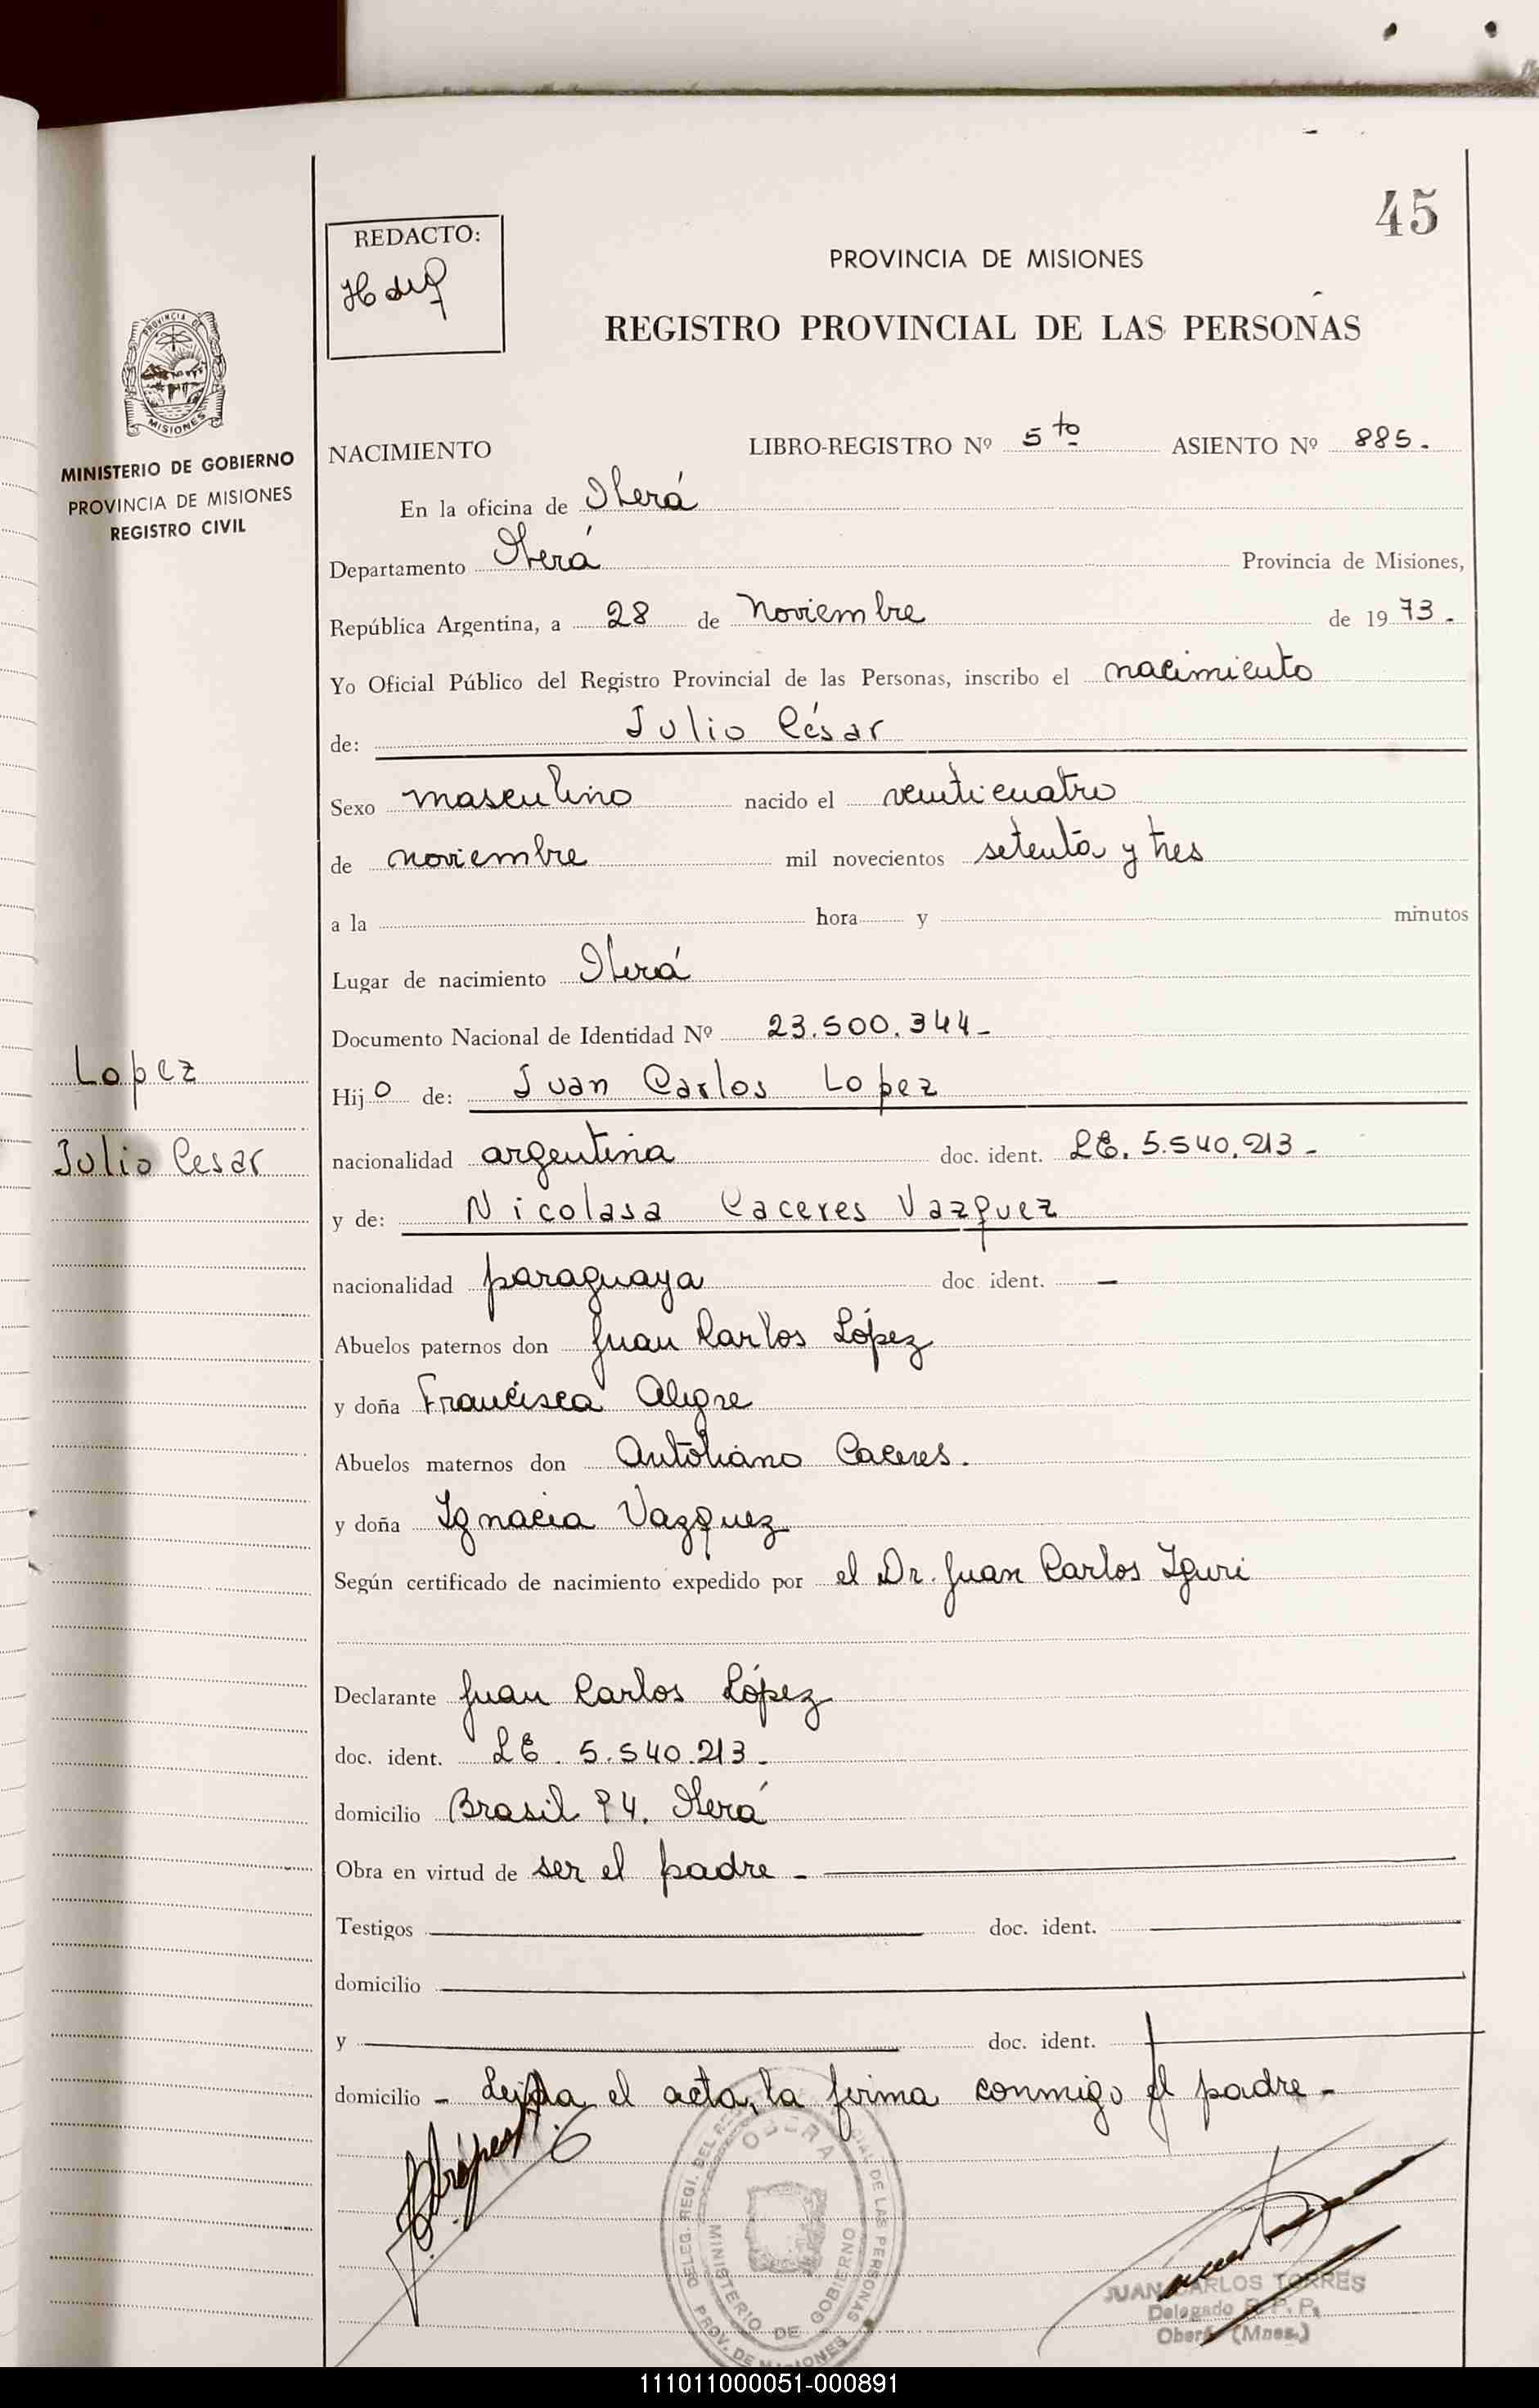 45
REDACTO:
PROVINCIA DE MISIONES
REGISTRO PROVINCIAL DE LAS PERSONAS
PROVINCIA DE
MISIONES
MINISTERIO DE GOBIERNO
PROVINCIA DE MISIONES
REGISTRO CIVIL
NACIMIENTO LIBRO-REGISTRO Nº 5to ASIENTO Nº 885.
En la oficina de Oberá
Departamento Oberá Provincia de Misiones,
República Argentina, a 28 de Noviembre de 1973.
Yo Oficial Público del Registro Provincial de las Personas, inscribo el nacimiento
de: Julio César
Sexo masculino nacido el veinticuatro
de noviembre mil novecientos setenta y tres
a la hora y minutos
Lugar de nacimiento Oberá
Documento Nacional de Identidad Nº 23.500.344-
Lopez
Hijo de: Juan Carlos Lopez
Julio Cesar
nacionalidad argentina doc. ident. LE. 5.540.213-
y de: Nicolasa Caceres Vazquez
nacionalidad paraguaya doc. ident. -
Abuelos paternos don Juan Carlos López
y doña Francisca Alegre
Abuelos maternos don Caceres.
y doña Ignacia Vazquez
Según certificado de nacimiento expedido por el Dr. Juan Carlos
Declarante Juan Carlos López
doc. ident. LE. 5.540.213-
domicilio Brasil Oberá
Obra en virtud de ser el padre -
Testigos doc. ident.
domicilio
y doc. ident.
domicilio - Leida el acta, la firma conmigo el padre -
OBERA
DELEG. REGI. DEL DE LAS PERSONAS
MINISTERIO DE GOBIERNO
PROV. DE MISIONES
JUAN CARLOS TORRES
Delegado R. P. P.
Oberá (Mnes.)
111011000051-000891